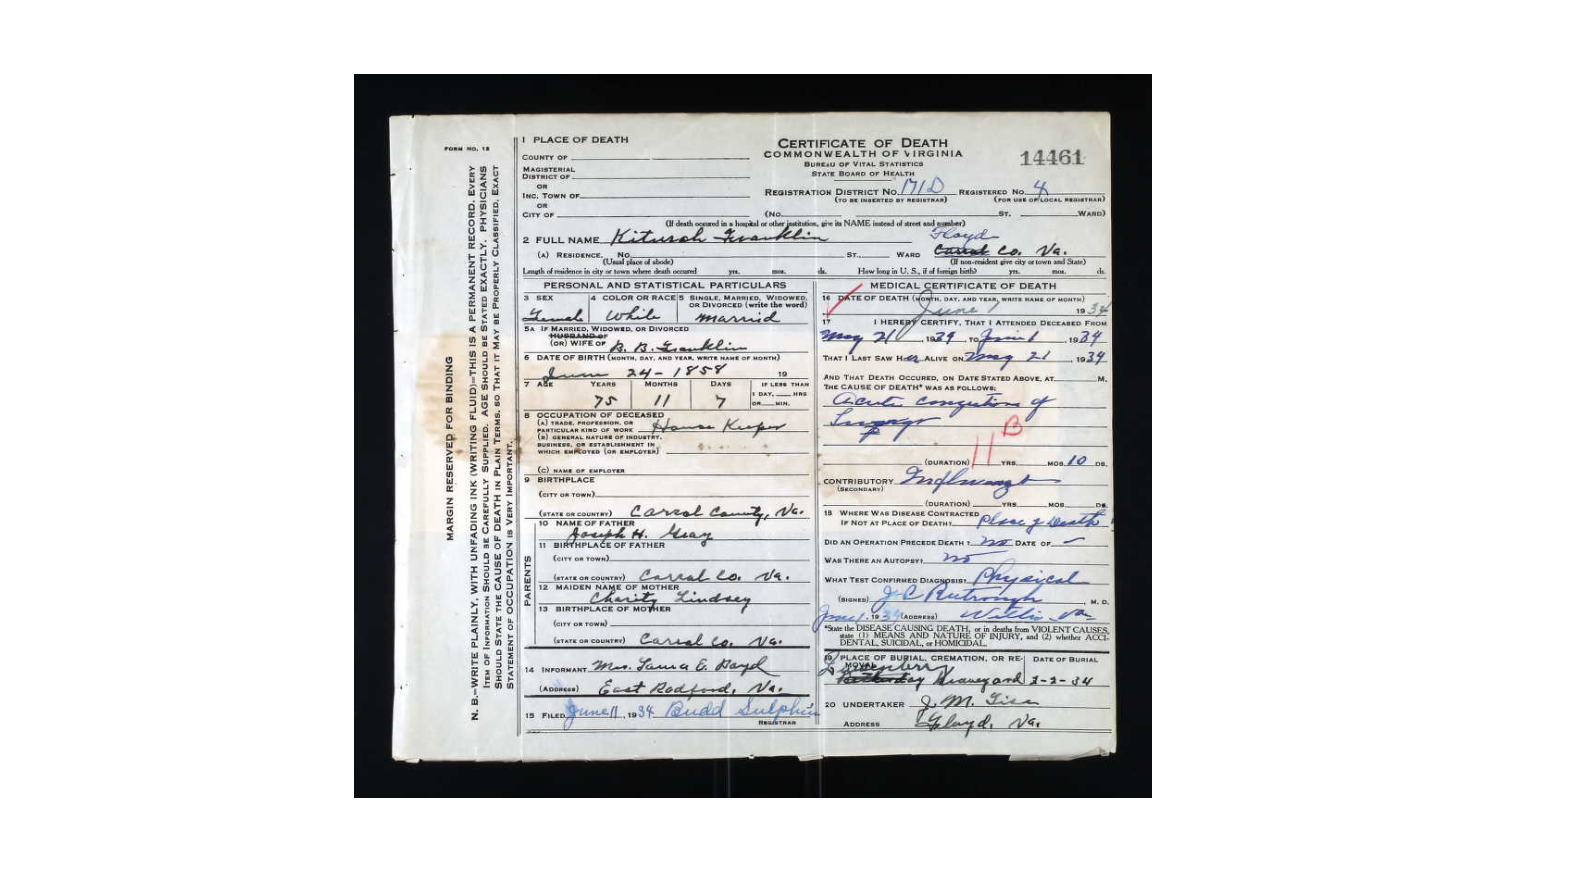 FORM NO. 12
MARGIN RESERVED FOR BINDING
N. B.—WRITE PLAINLY, WITH UNFADING INK (WRITING FLUID)—THIS IS A PERMANENT RECORD. EVERY
ITEM OF INFORMATION SHOULD BE CAREFULLY SUPPLIED. AGE SHOULD BE STATED EXACTLY. PHYSICIANS
SHOULD STATE THE CAUSE OF DEATH IN PLAIN TERMS, SO THAT IT MAY BE PROPERLY CLASSIFIED. EXACT
STATEMENT OF OCCUPATION IS VERY IMPORTANT.
1 PLACE OF DEATH
COUNTY OF
MAGISTERIAL
DISTRICT OF
OR
INC. TOWN OF
OR
CITY OF
CERTIFICATE OF DEATH
COMMONWEALTH OF VIRGINIA
BUREAU OF VITAL STATISTICS
STATE BOARD OF HEALTH
14461
REGISTRATION DISTRICT NO. 171D REGISTERED NO. 4
(TO BE INSERTED BY REGISTRAR) (FOR USE OF LOCAL REGISTRAR)
(No. ST. WARD)
(If death occured in a hospital or other institution, give its NAME instead of street and number)
2 FULL NAME Franklin
Floyd
(A) RESIDENCE. No. ST. WARD Carral Co. Va.
(Usual place of abode) (If non-resident give city or town and State)
Length of residence in city or town where death occured yrs. mos. ds. How long in U. S., if of foreign birth? yrs. mos. ds.
PERSONAL AND STATISTICAL PARTICULARS
3 SEX 4 COLOR OR RACE 5 SINGLE, MARRIED, WIDOWED, OR DIVORCED (write the word)
Female White Married
5A IF MARRIED, WIDOWED, OR DIVORCED
HUSBAND OF
(OR) WIFE OF B. B. Franklin
6 DATE OF BIRTH (MONTH, DAY, AND YEAR, WRITE NAME OF MONTH)
June 24-1858 19
7 AGE YEARS MONTHS DAYS IF LESS THAN
1 DAY, HRS
OR MIN.
75 11 7
8 OCCUPATION OF DECEASED
(A) TRADE, PROFESSION, OR
PARTICULAR KIND OF WORK House Keeper
(B) GENERAL NATURE OF INDUSTRY,
BUSINESS, OR ESTABLISHMENT IN
WHICH EMPLOYED (OR EMPLOYER)
(C) NAME OF EMPLOYER
9 BIRTHPLACE
(CITY OR TOWN)
(STATE OR COUNTRY) Carral County, Va.
PARENTS
10 NAME OF FATHER
Joseph H. Gray
11 BIRTHPLACE OF FATHER
(CITY OR TOWN)
(STATE OR COUNTRY) Carral Co. Va.
12 MAIDEN NAME OF MOTHER
Charity Lindsey
13 BIRTHPLACE OF MOTHER
(CITY OR TOWN)
(STATE OR COUNTRY) Carral Co. Va.
14 INFORMANT Mrs. E.
(ADDRESS) East Radford, Va.
15 FILED June 11, 1934 Budd Sulphin
REGISTRAR
MEDICAL CERTIFICATE OF DEATH
16 DATE OF DEATH (MONTH, DAY, AND YEAR, WRITE NAME OF MONTH)
June 1 1934
17 I HEREBY CERTIFY, THAT I ATTENDED DECEASED FROM
May 21, 1934, TO June 1, 1934
THAT I LAST SAW HER ALIVE ON May 21, 1934
AND THAT DEATH OCCURED, ON DATE STATED ABOVE, AT M.
THE CAUSE OF DEATH* WAS AS FOLLOWS:
Acute congestions of
11 B
(DURATION) YRS. MOS. 10 DS.
CONTRIBUTORY Influenza
(SECONDARY)
(DURATION) YRS. MOS. DS.
18 WHERE WAS DISEASE CONTRACTED
IF NOT AT PLACE OF DEATH? Place of Death
DID AN OPERATION PRECEDE DEATH? No DATE OF
WAS THERE AN AUTOPSY? No
WHAT TEST CONFIRMED DIAGNOSIS? Physical
(SIGNED) J C M. D.
June 1, 1934 (ADDRESS) Willis Va
*State the DISEASE CAUSING DEATH, or in deaths from VIOLENT CAUSES,
state (1) MEANS AND NATURE OF INJURY, and (2) whether ACCI-
DENTAL, SUICIDAL, or HOMICIDAL.
19 PLACE OF BURIAL, CREMATION, OR RE- DATE OF BURIAL
MOVAL
Graveyard 2-2-34
20 UNDERTAKER J. M.
ADDRESS Floyd, Va.